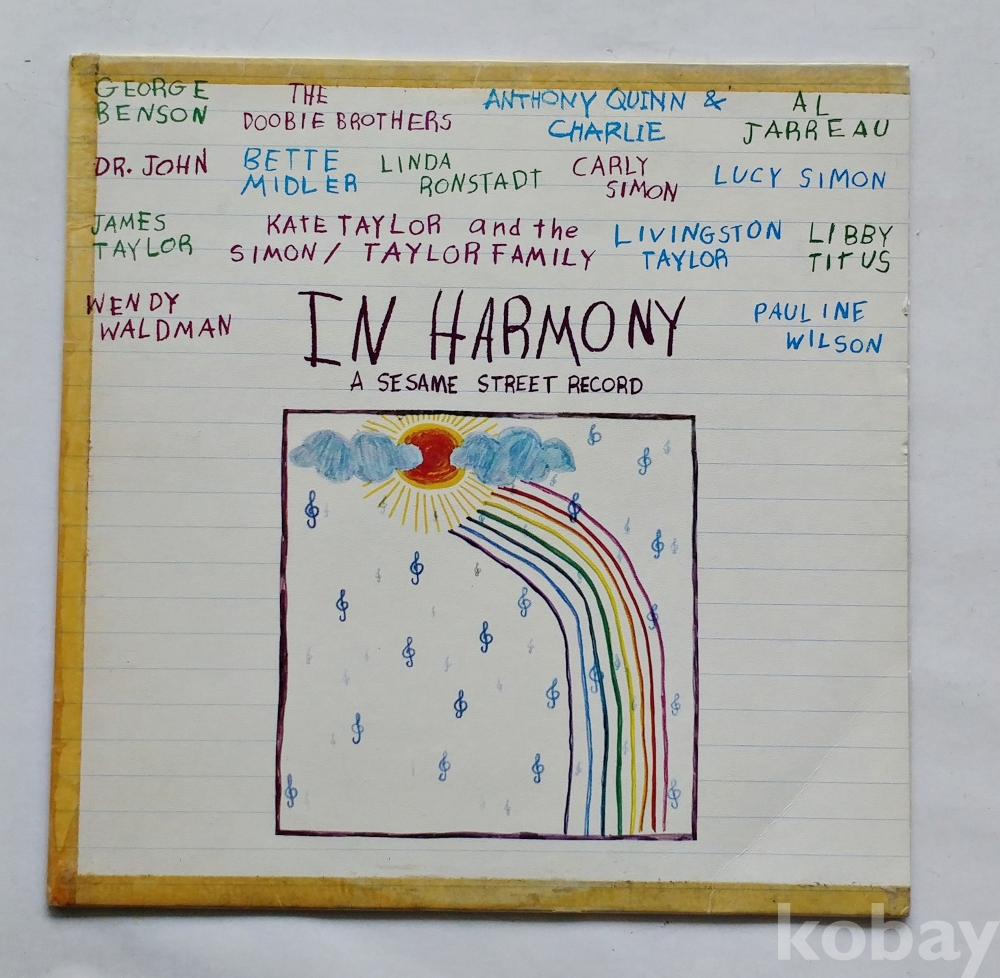 GEORGE
BENSON
THE
DOOBIE BROTHERS
ANTHONY QUINN &
CHARLIE
AL
JARREAU
DR. JOHN
BETTE
MIDLER
LINDA
RONSTADT
CARLY
SIMON
LUCY SIMON
JAMES
TAYLOR
KATE TAYLOR and the
SIMON / TAYLOR FAMILY
LIVINGSTON
TAYLOR
LIBBY
TITUS
WENDY
WALDMAN
IN HARMONY
PAULINE
WILSON
A SESAME STREET RECORD
kobay